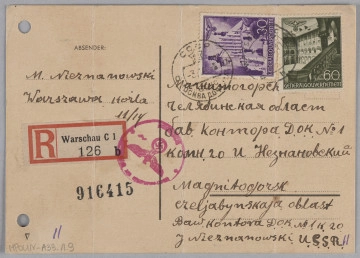 ABSENDER:
M. Nieznanowski
Warszawa Hoża
11/14
R
Warschau C 1
126 b
916415
30
GENERALGOUVERNEMENT
60
GENERALGOUVERNEMENT
Магнитогорск
Челябинская област
Контора Д.О.К. № 1
комн. 20 И. Незнановский
Magnitogorsk
czeljabynskaja oblast
Kontora D.O.K. № 1 k. 20
J. Nieznanowski U.S.S.R.
11